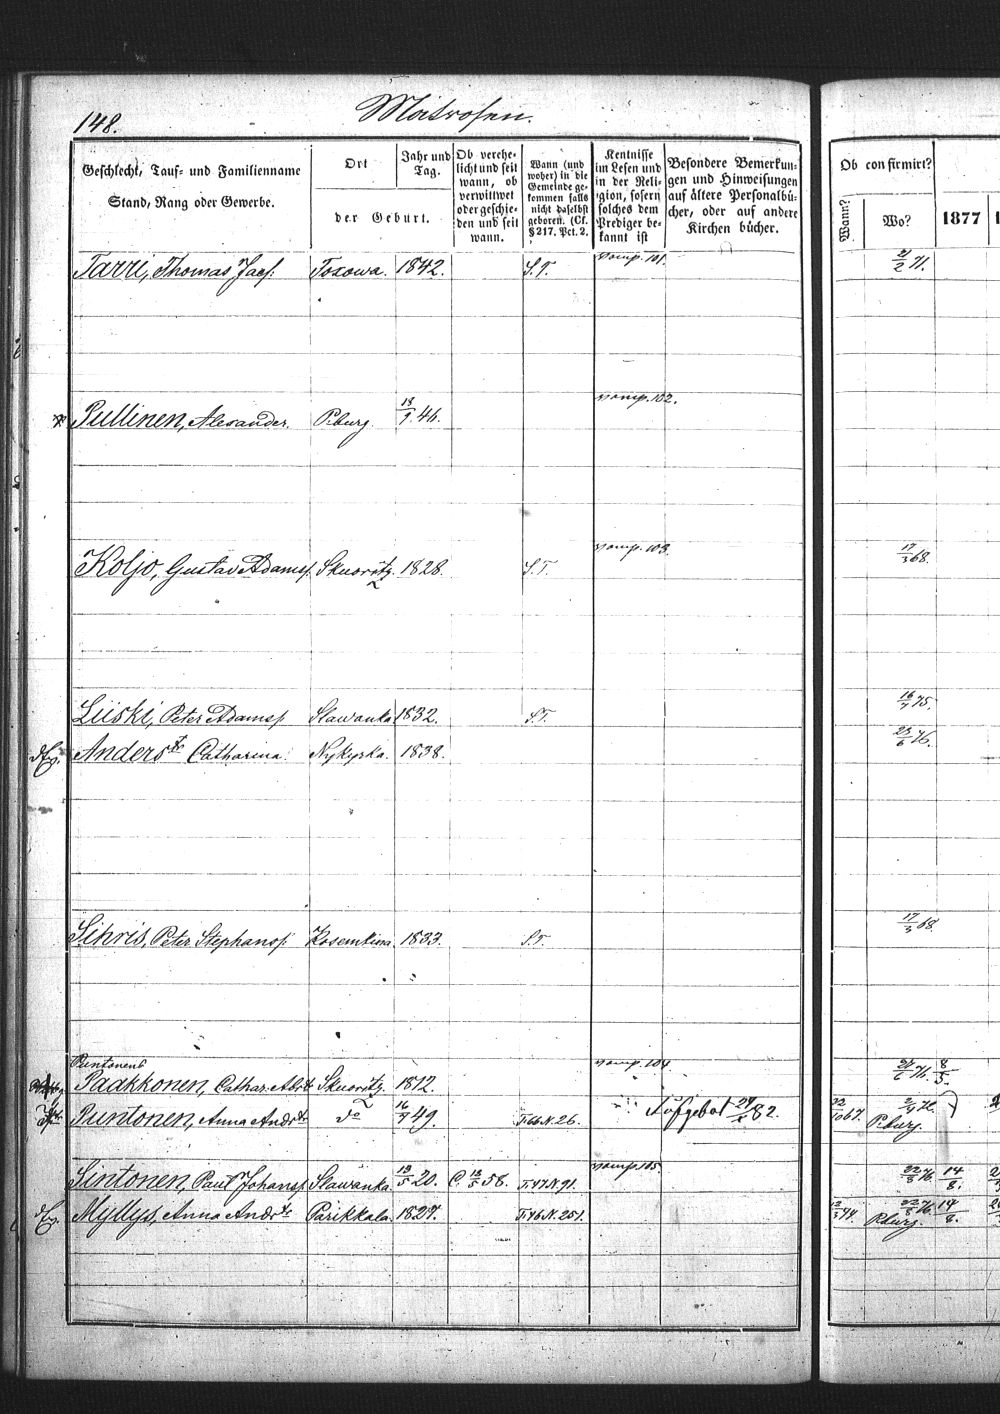 148. Matrosen.
Geschlecht, Tauf- und Familienname
Stand, Rang oder Gewerbe.
Ort
der Geburt.
Jahr und
Tag.
Ob verehe-
licht und seit
wann, ob
verwittwet
oder geschie-
den und seit
wann.
Wann (und
woher) in die
Gemeinde ge-
kommen falls
nicht daselbst
geboren. (Cf.
§ 217. Pct. 2.
Kentnisse
im Lesen und
in der Reli-
gion, sofern
solches dem
Prediger be-
kannt ist
Besondere Bemerkun-
gen und Hinweisungen
auf ältere Personalbü-
cher, oder auf andere
Kirchen bücher.
Ob confirmirt?
Wann?
Wo?
1877
Tarri, Thomas Jacs: Toxowa. 1842. S.T. vomp. 101. 71.
Pullinen, Alexander. Pburg. 46. vomp. 102.
Koljo, Gustav Adamss. Skuoritz. 1828. S.T. vomp. 103. 17/3 68.
Liiski, Peter Adamss. Slawanka 1832. S.T. 75.
Anders Catharina. Nykyrka. 1838. 76.
Sihris, Peter Stephanss: Kosemkina. 1833. S.T. 17/3 68.
Puntonens
Paakkonen, Cathar. Skuoritz. 1812. vomp. 104
Puntonen, Anna Andrs do 49. T. 66 N. 26. Aufgebot 82. 67. Pburg.
Sintonen, Paul Johanss. Slawanka 13/5 20. C. 58. T. 47 N. 91. vomp. 105. 76. 14/8.
Myllys, Anna Andrs Parikkala. 1827. T. 46 N. 251. 44. Pburg. 76. 14/8.